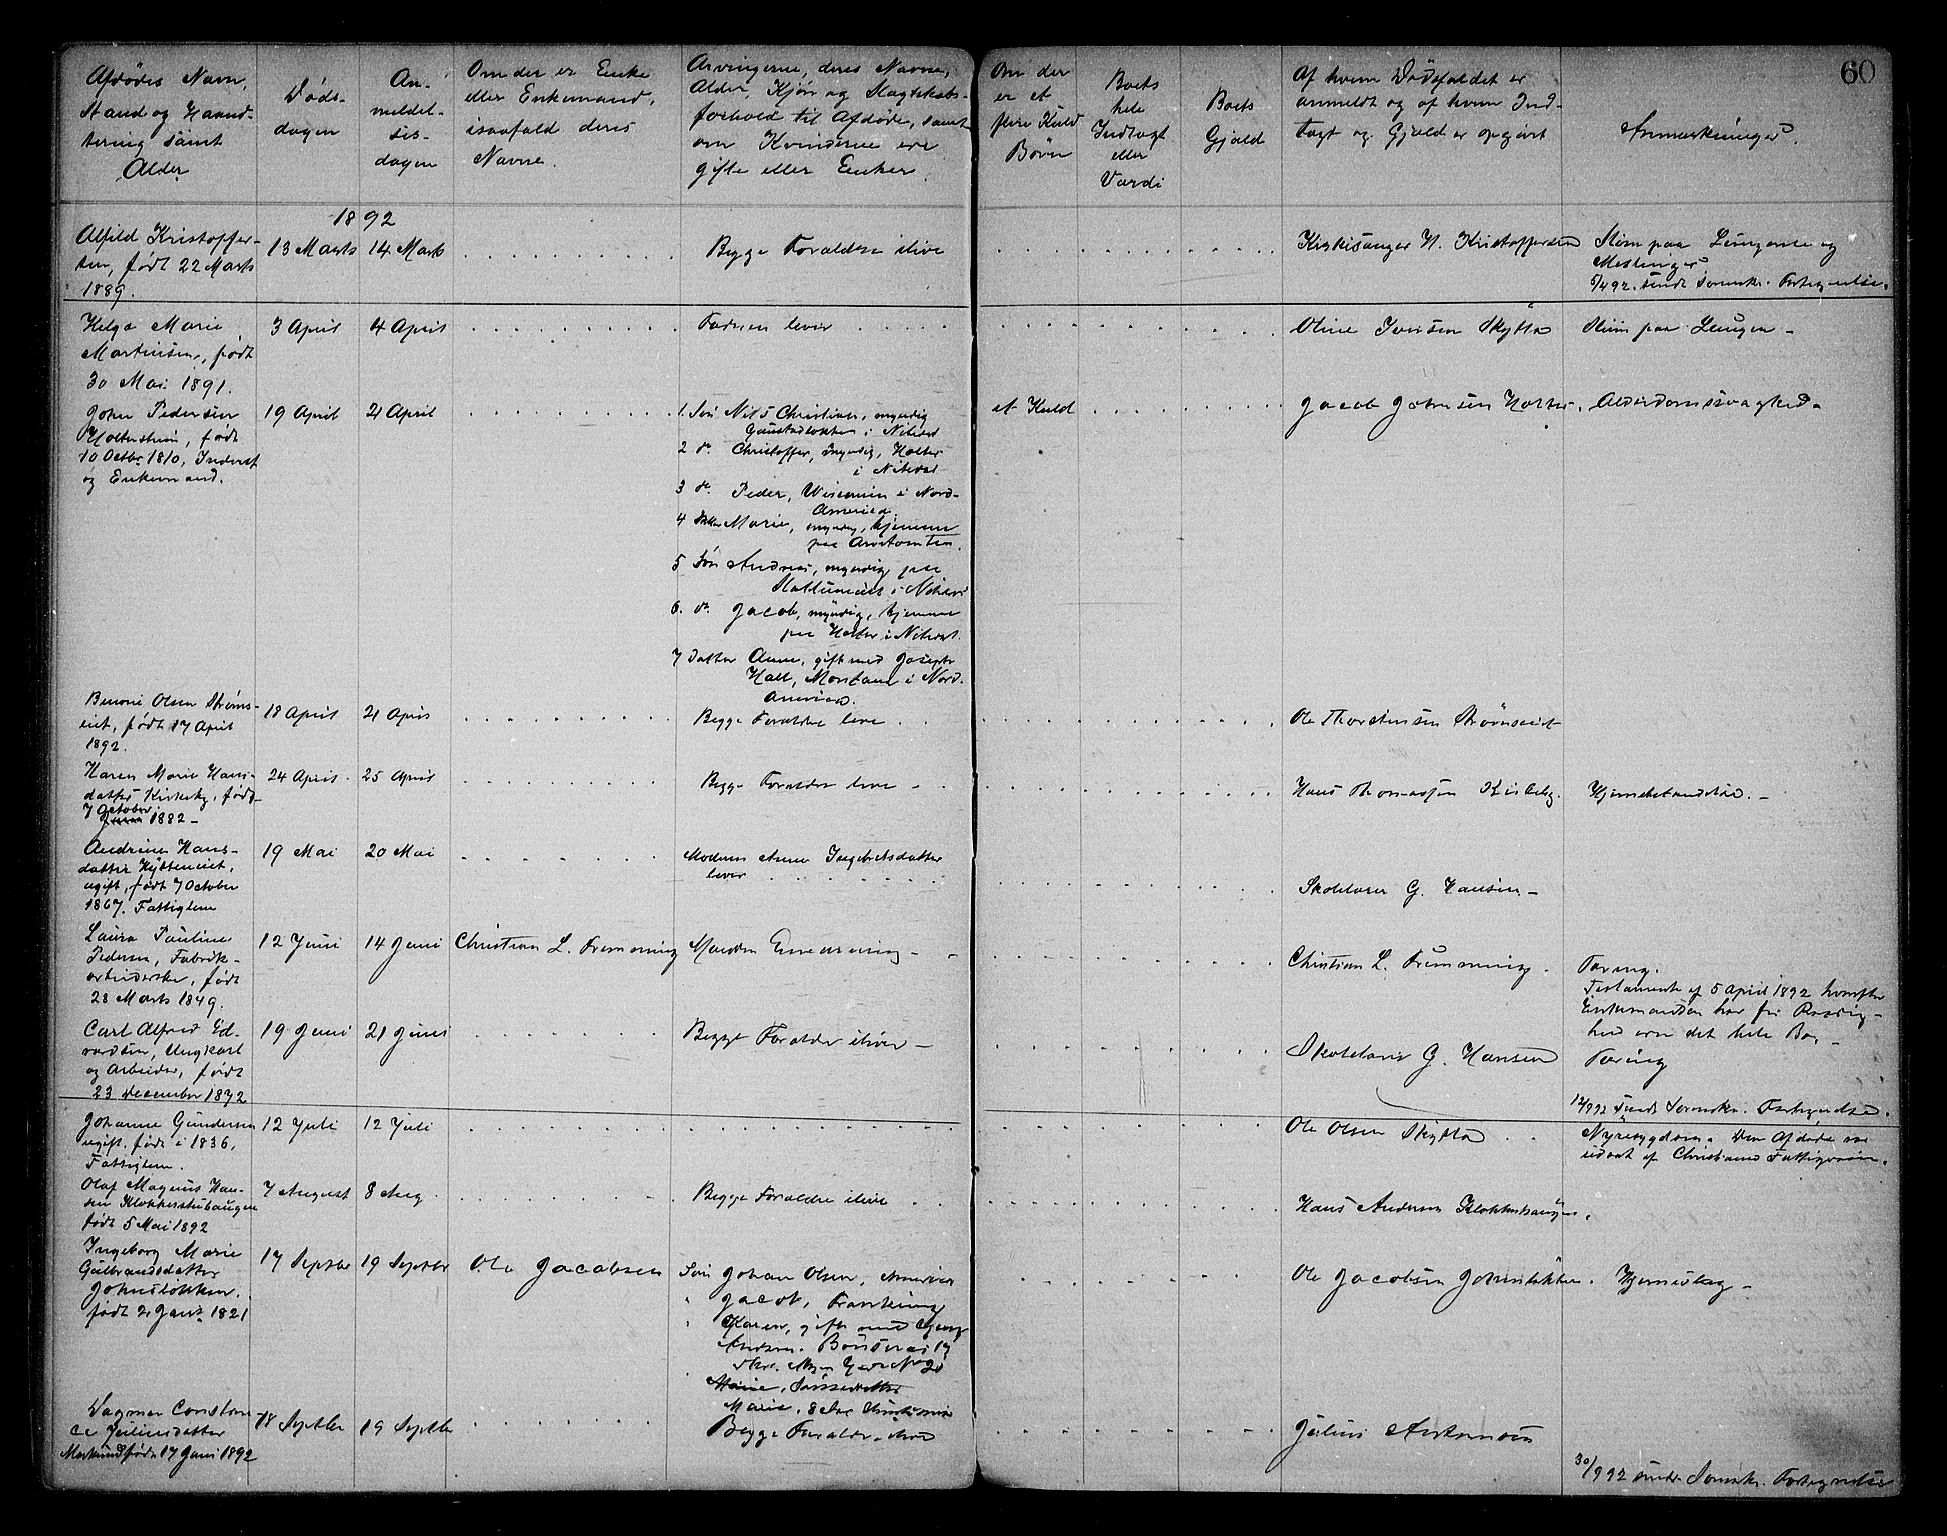 60
Afdødes Navn,
Stand og Haand-
tering samt
Alder
Døds-
dagen
An-
meldel-
ses-
dagen
Om der er Enke
eller Enkemand,
isaafald deres
Navne.
Arvingerne, deres Navne,
Alder, Kjøn og Slagtskabs-
forhold til Afdøde, samt
om Kvinderne ere
gifte eller Enker.
Om der
er et
flere Kuld
Børn
Boets
hele
Indtægt
eller
Værdi
Boets
Gjæld
Af hvem Dødsfaldet er
anmeldt og af hvem Ind-
tægt og Gjæld er opgivet
Anmærkninger.
1892
Alfild Kristoffer-
sen, født 22 Marts
1889.
13 Marts
14 Marts
Begge Forældre ilive
Kirkesanger H. Kristoffersen
Slim paa Lungerne og
Meslinger
5/4 92. sendt Sorenskr. Fortegnelse.
Helga Marie
Martinsen, født
30 Mai 1891.
3 April
4 April
Faderen lever
Oline Iversen Skytta
Slim paa Lungen -
John Pedersen
Holtersheim, født
10 Octbr. 1810, Inderst
og Enkemand.
19 April
21 April
1 Søn Nils Christian, myndig
i Nitedal
2 do. Christoffer, myndig, Holter
i Nitedal
3 do. Peder, Wisconsin i Nord-
America
4 Datter Marie, myndig, hjemme
paa
5 Søn Andreas, myndig paa
i Nitedal
6. do. Jacob, myndig, hjemme
paa Holter i Nitedal.
7 Datter Anne, gift med Joseph
Hall, Montana i Nord-
America.
et Kuld
Jacob Johnsen Holter.
Alderdomssvaghed.
Benoni Olsen Strøms-
eiet, født 17 April
1892.
18 April
21 April
Begge Forældre leve
Ole Thorstensen Strømseiet
Karen Marie Hans-
datter Kirkeby, født
7 October
1882 -
24 April
25 April
Begge Forældre leve -
Hans Thomassen Kirkeby.
Hjernebetændelse. -
Andrine Hans-
datter Hytteeiet,
ugift, født 7 October
1867. Fattiglem
19 Mai
20 Mai
Moderen Anne Ingebretsdatter
lever
Skolelærer G. Hansen -
Laura Pauline
Pedersen, Fabrik-
arbeiderske, født
28 Marts 1849.
12 Juni
14 Juni
Christian L. Fremming
Manden Enearving -
Christian L. Fremming.
Tæring.
Testamente af 5 April 1892 hvorefter
Enkemanden har fri Raadig-
hed over det hele Bo -
Carl Alfred Ed-
vardsen, Ungkarl
og Arbeider, født
23 December 1872
19 Juni
21 Juni
Begge Forældre ilive -
Skolelærer G. Hansen
Tæring
12/7 92 sendt Sorenskr. Fortegnelse.
Johanne Gundersen
ugift. født i 1836.
Fattiglem.
12 Juli
12 Juli
Ole Olsen Skytta
Nyresygdom. Den Afdøde var
udsat af Christiania Fattigvæsen.
Olaf Magnus Han-
sen Klokkerstuhaugen
født 5 Mai 1892
7 August
8 Aug.
Begge Forældre ilive
Hans Andersen Klokkerhaugen.
Ingeborg Marie
Gulbrandsdatter
Johnsløkken.
født 21 Janr. 1821
17 Septbr
19 Septbr
Ole Jacobsen
Søn Johan Olsen, America
" Jacob,
" Karen, gift med Georg
Andersen.
Marie,
Marie,
Ole Jacobsen Johnsløkken.
Hjerneslag -
Dagmar Constan-
ce Juliusdatter
født 17 Juni 1892
18 Septbr
19 Septbr
Begge Forældre ilive
Julius Antonsen
30/9 92 sendt Sorenskr. Fortegnelse